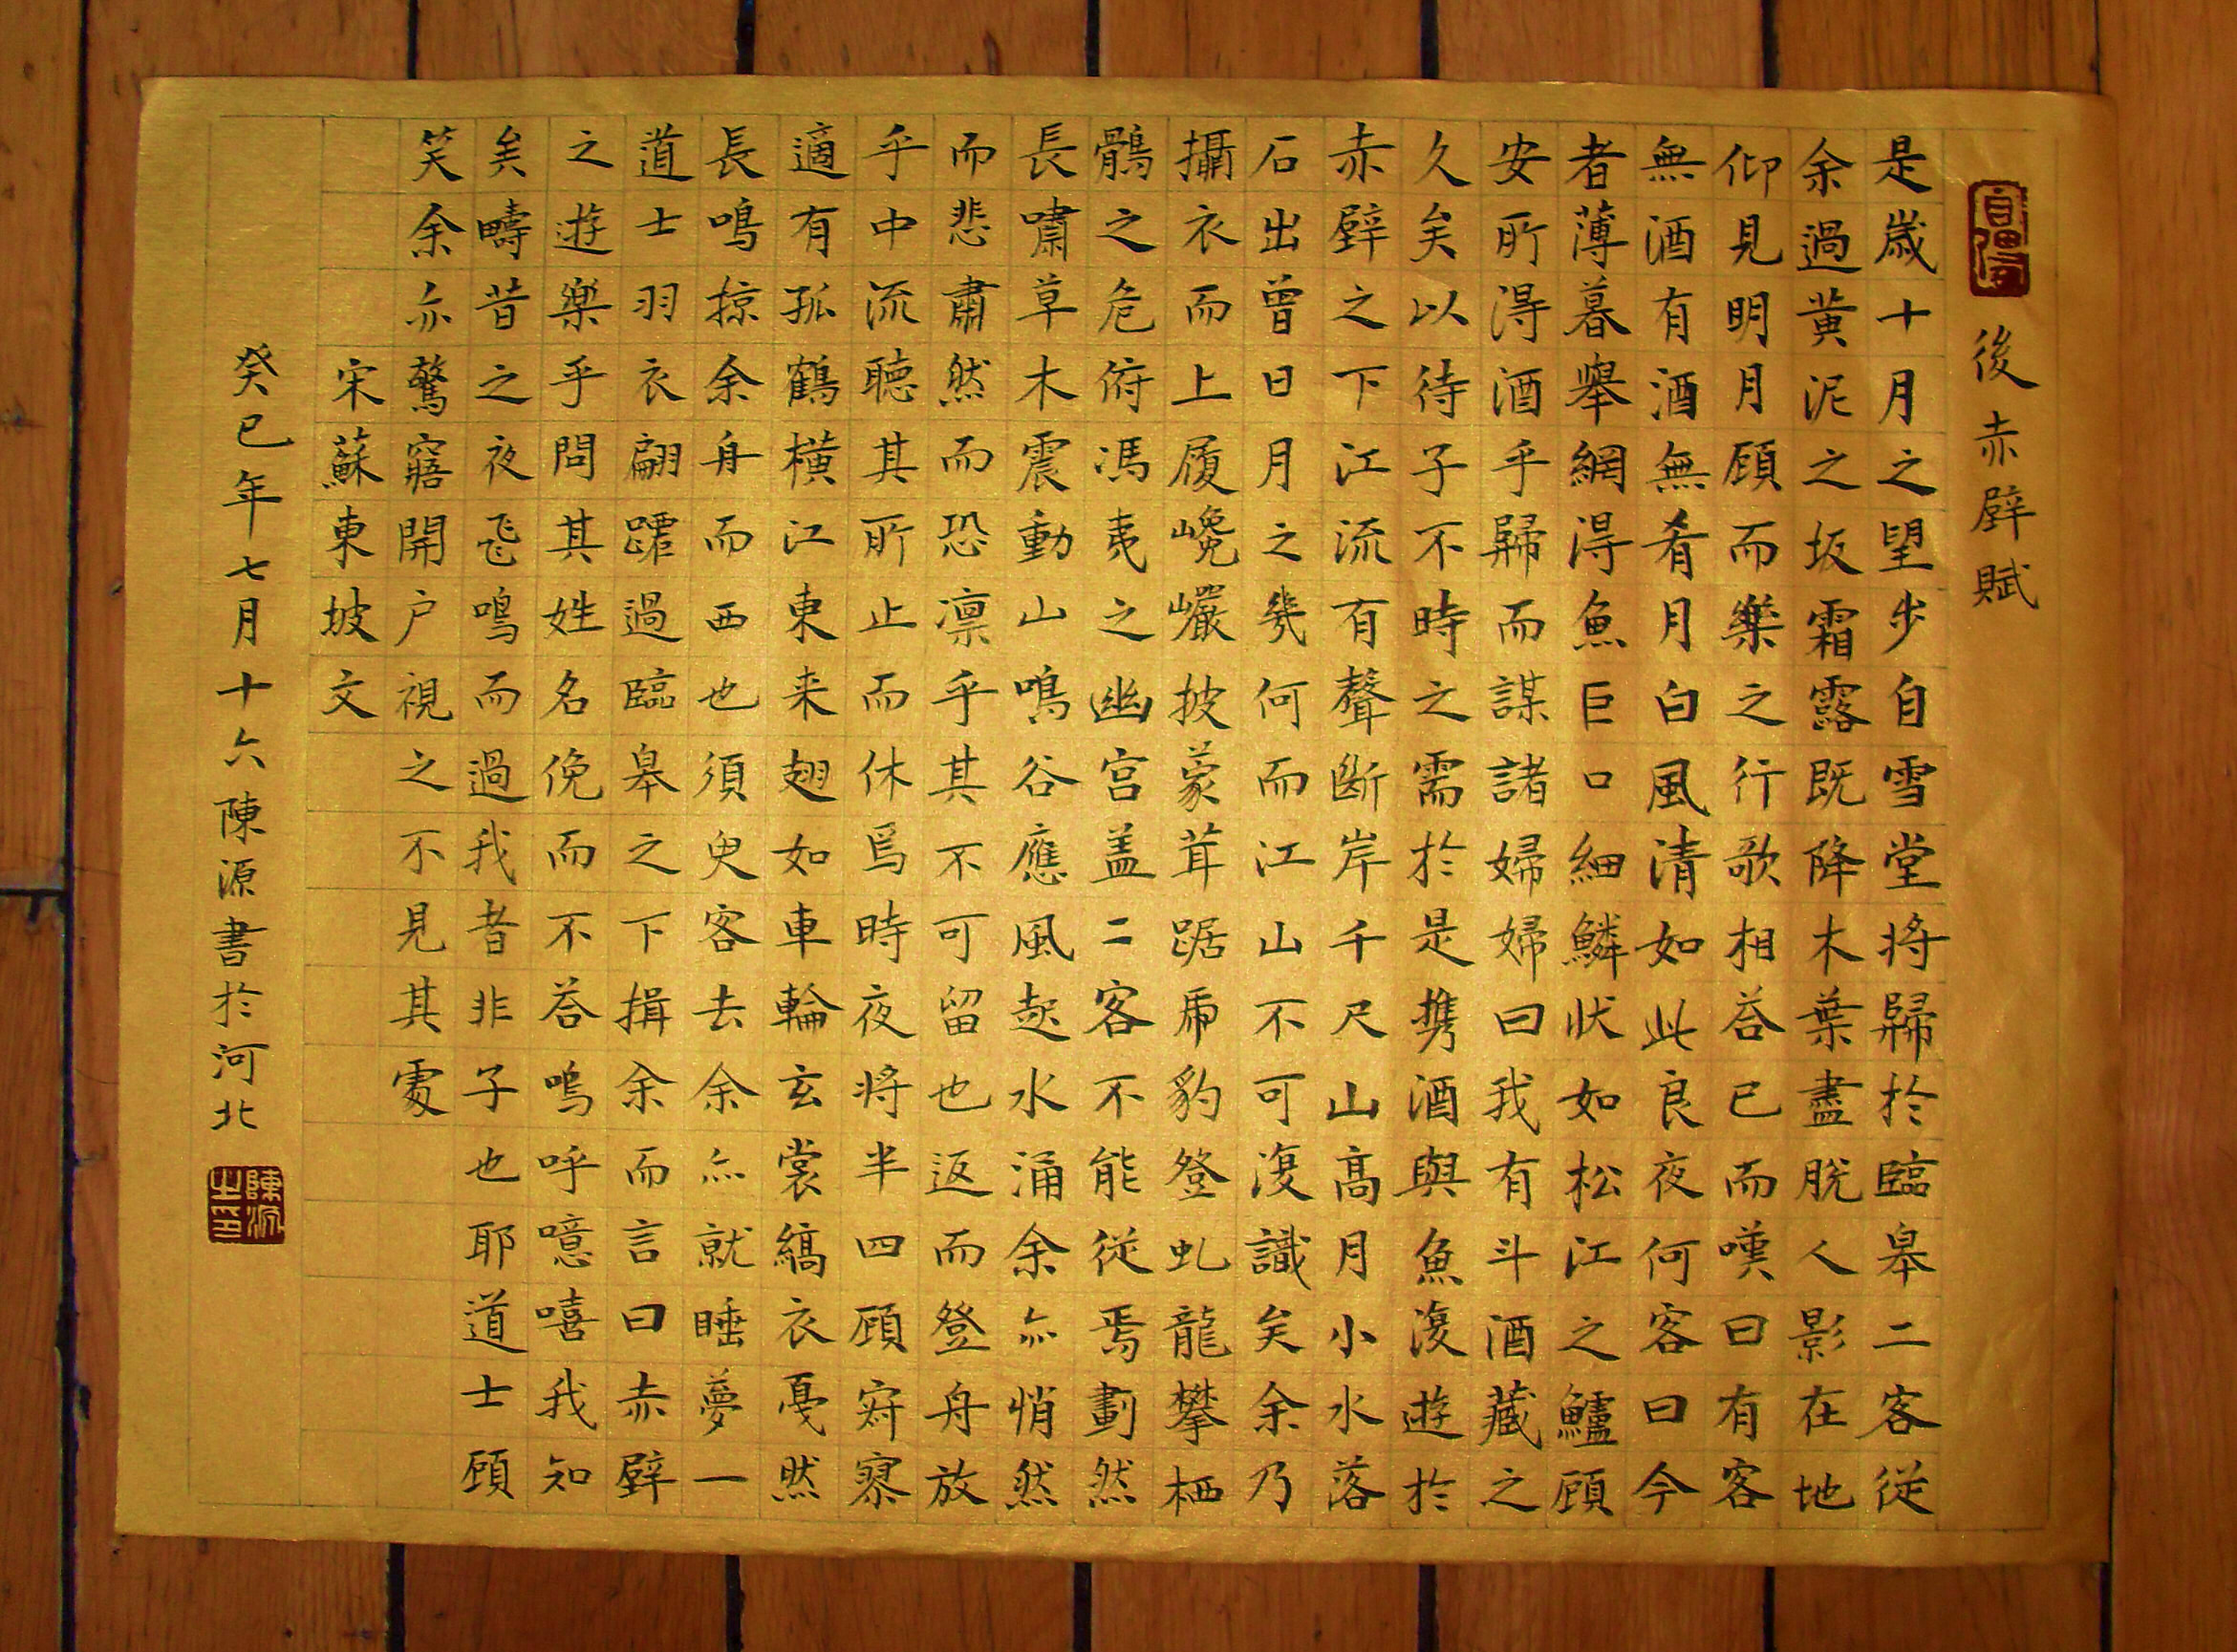 後赤壁賦
是歲十月之望步自雪堂將歸於臨皋二客從
余過黃泥之坂霜露既降木葉盡脫人影在地
仰見明月顧而樂之行歌相荅已而嘆曰有客
無酒有酒無肴月白風清如此良夜何客曰今
者薄暮舉網得魚巨口細鱗狀如松江之鱸顧
安所得酒乎歸而謀諸婦婦曰我有斗酒藏之
久矣以待子不時之需於是攜酒與魚復遊於
赤壁之下江流有聲斷岸千尺山高月小水落
石出曾日月之幾何而江山不可復識矣余乃
攝衣而上履巉巖披蒙茸踞虎豹登虬龍攀栖
鶻之危俯馮夷之幽宮盖二客不能從焉劃然
長嘯草木震動山鳴谷應風起水涌余亦悄然
而悲肅然而恐凛乎其不可留也返而登舟放
乎中流聽其所止而休焉時夜將半四顧寂寥
適有孤鶴橫江東来翅如車輪玄裳縞衣戛然
長鳴掠余舟而西也須臾客去余亦就睡夢一
道士羽衣翩躚過臨皋之下揖余而言曰赤壁
之遊樂乎問其姓名俛而不荅嗚呼噫嘻我知
矣疇昔之夜飛鳴而過我者非子也耶道士顧
笑余亦驚寤開户視之不見其處
宋蘇東坡文
癸巳年七月十六陳源書於河北
陳源之印